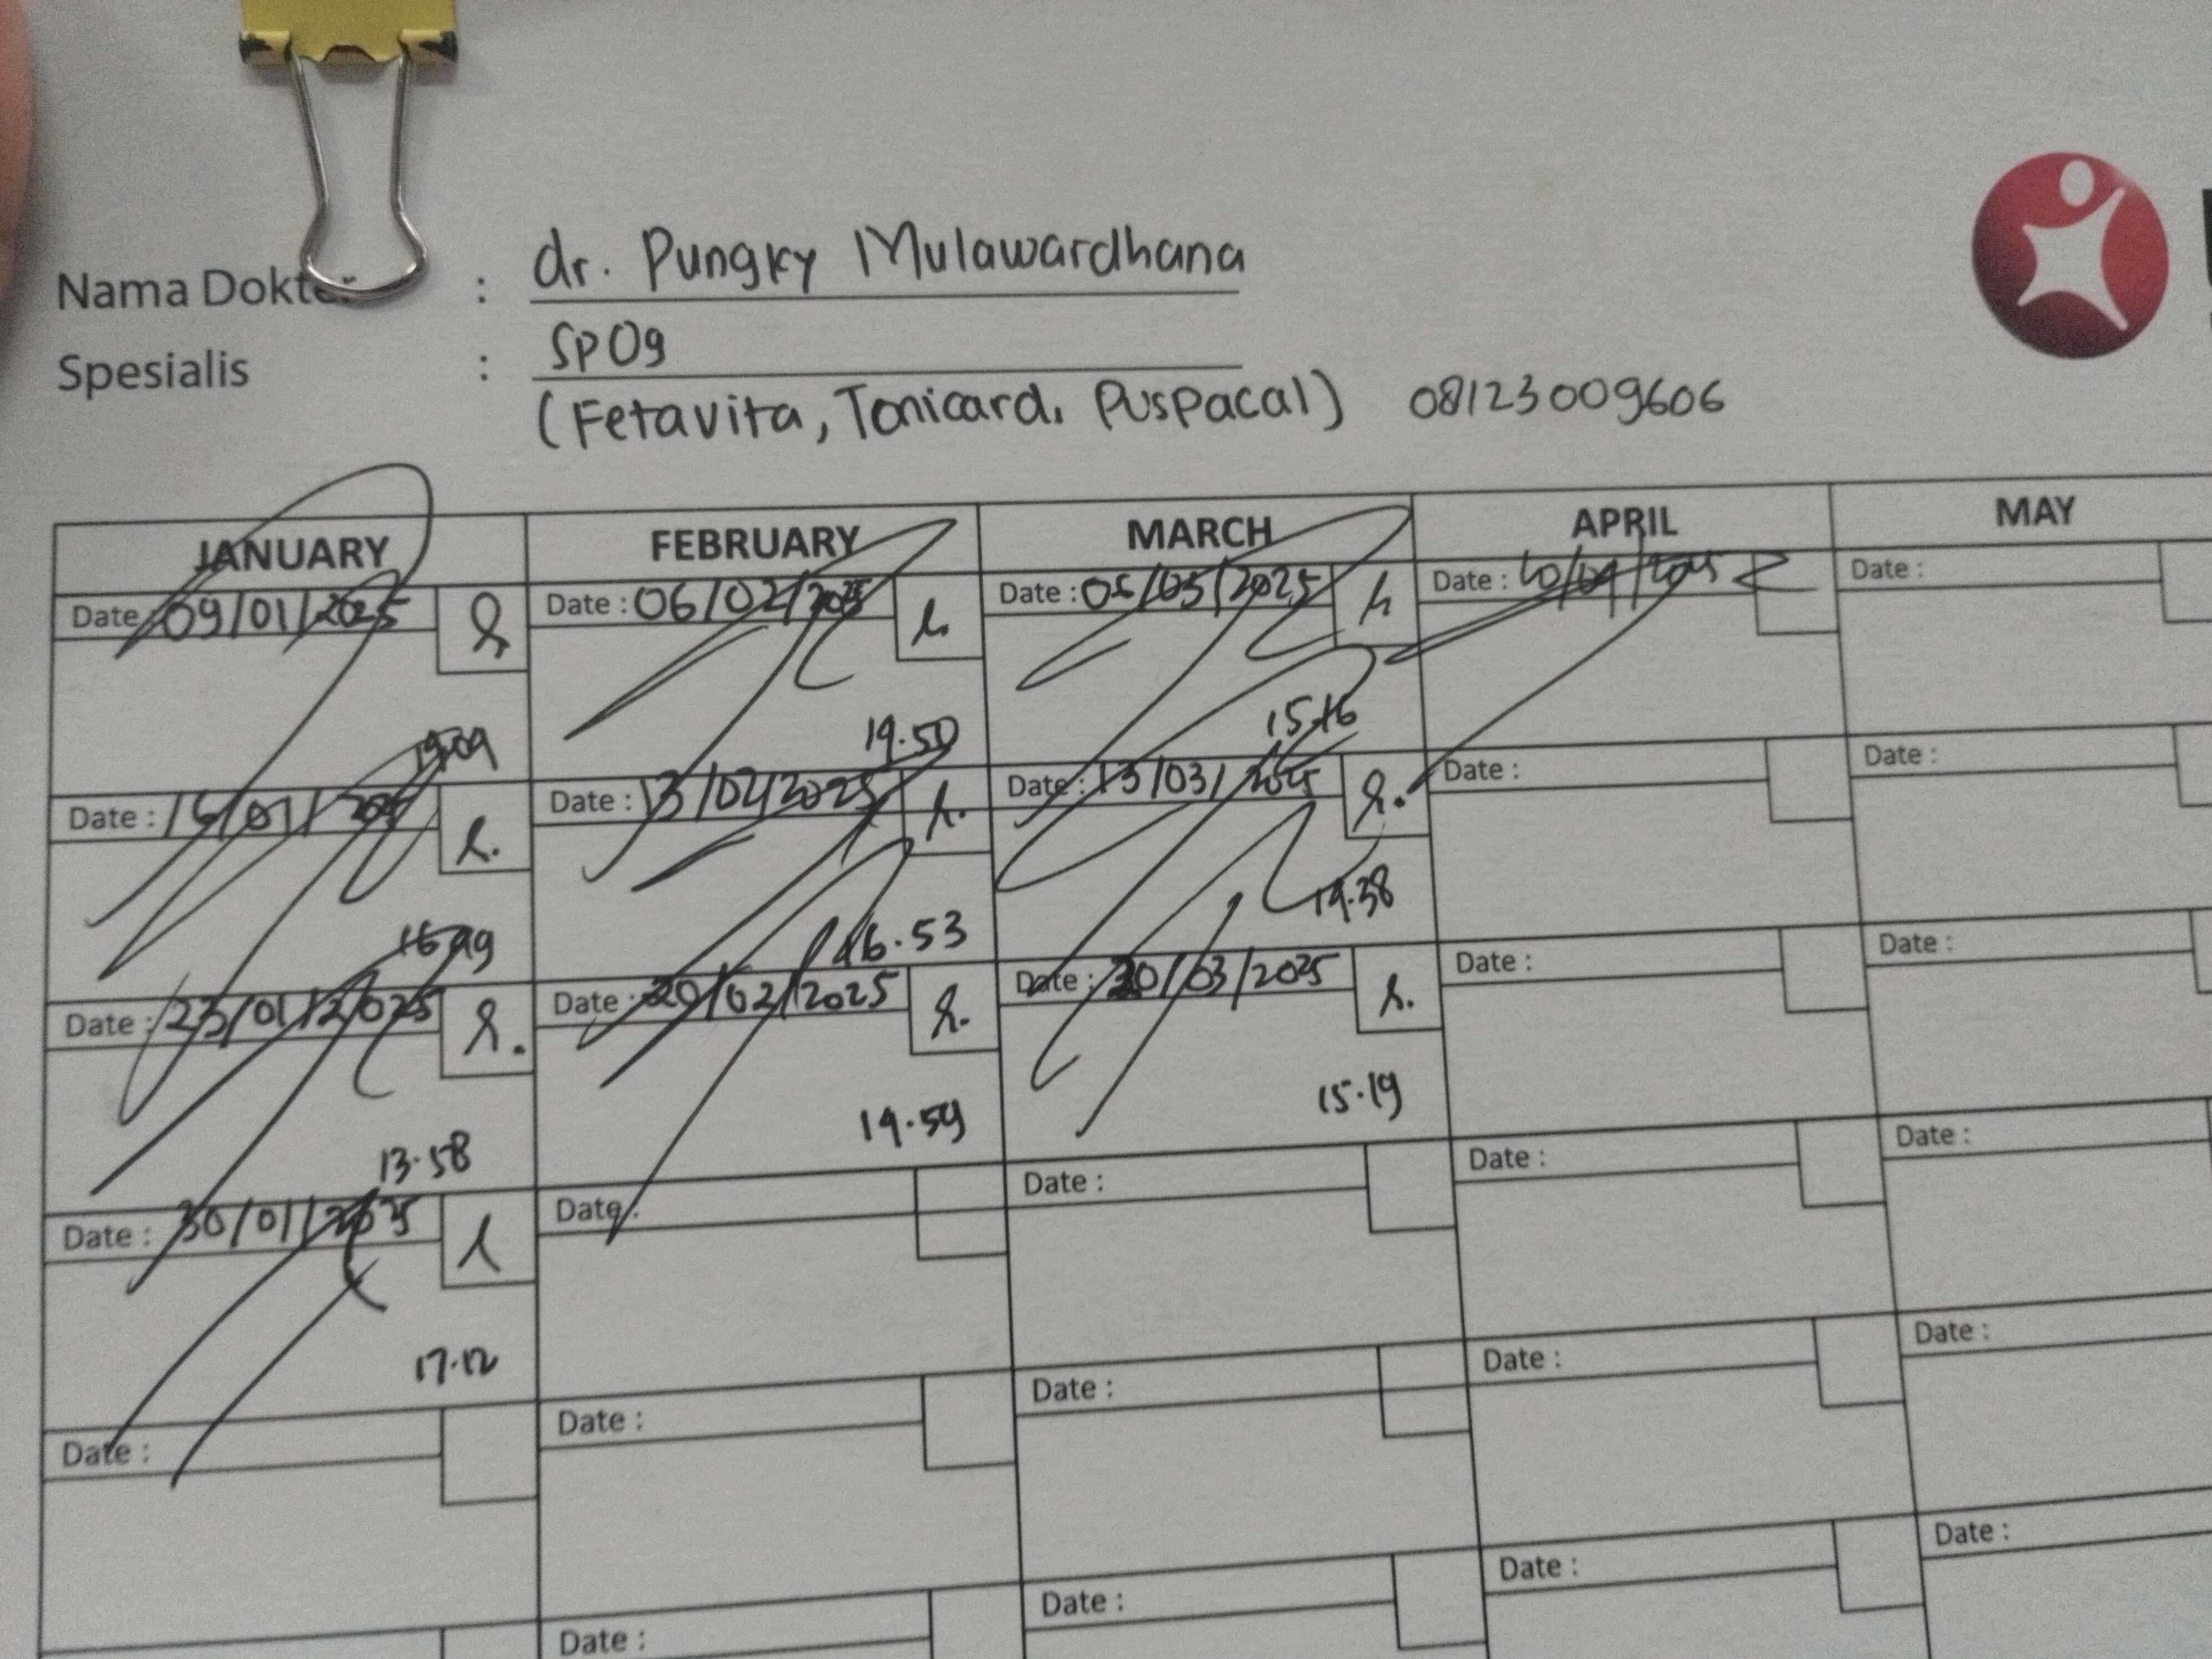 Nama Dokter : dr. Pungky Mulawardhana
Spesialis : SpOg
(Fetavita, Tonicard, Puspacal) 08123009606
JANUARY FEBRUARY MARCH APRIL MAY
Date : 09/01/2025 Date : 06/02/2025 Date : 05/03/2025 Date : Date :
19.50 15.16
Date : 16/01/2025 Date : 13/02/2025 Date : 13/03/2025 Date : Date :
16.53 14.38
Date : 23/01/2025 Date : 20/02/2025 Date : 20/03/2025 Date : Date :
13.58 14.59 15.19
Date : 30/01/2025 Date : Date : Date : Date :
17.12
Date : Date : Date : Date : Date :
Date : Date : Date : Date :